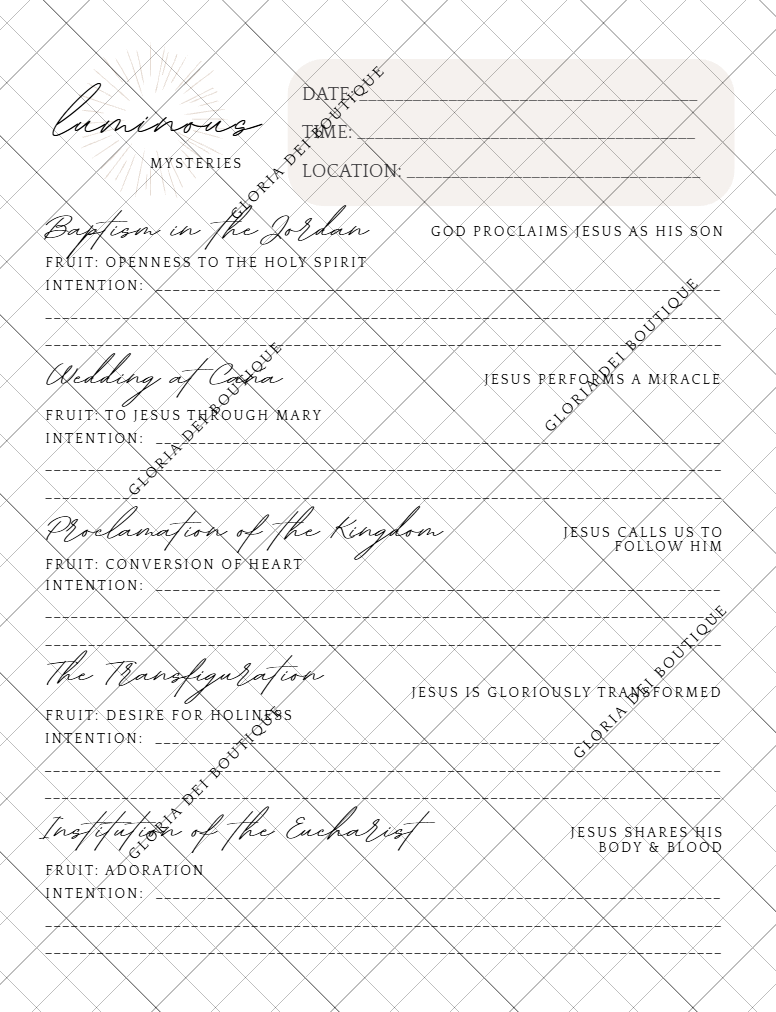 luminous
MYSTERIES
DATE: ________________________________________
TIME: ________________________________________
LOCATION: ___________________________________
GLORIA DEI BOUTIQUE
Baptism in the Jordan
GOD PROCLAIMS JESUS AS HIS SON
FRUIT: OPENNESS TO THE HOLY SPIRIT
INTENTION: ________________________________________
GLORIA DEI BOUTIQUE
Wedding at Cana
JESUS PERFORMS A MIRACLE
FRUIT: TO JESUS THROUGH MARY
INTENTION: ________________________________________
GLORIA DEI BOUTIQUE
Proclamation of the Kingdom
JESUS CALLS US TO
FOLLOW HIM
FRUIT: CONVERSION OF HEART
INTENTION: ________________________________________
The Transfiguration
JESUS IS GLORIOUSLY TRANSFORMED
GLORIA DEI BOUTIQUE
FRUIT: DESIRE FOR HOLINESS
INTENTION: ________________________________________
GLORIA DEI BOUTIQUE
Institution of the Eucharist
JESUS SHARES HIS
BODY & BLOOD
FRUIT: ADORATION
INTENTION: ________________________________________